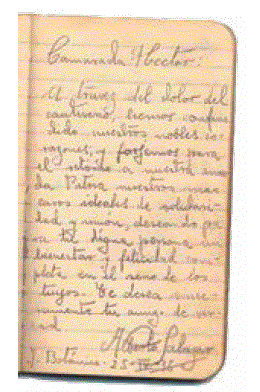 Camarada Hector:
A travez del dolor del
cautiverio, hemos confun
dido nuestros nobles co-
razones, y forjemos para
el retorno a nuestra ama
da Patria nuestros mas
caros ideales de solidari-
dad y unión, deseando pa
ra tu digna persona un
bienestar y felicidad com-
pleta en el seno de los
tuyos. Te desea
tu amigo de ver
dad
Alberto Salazar